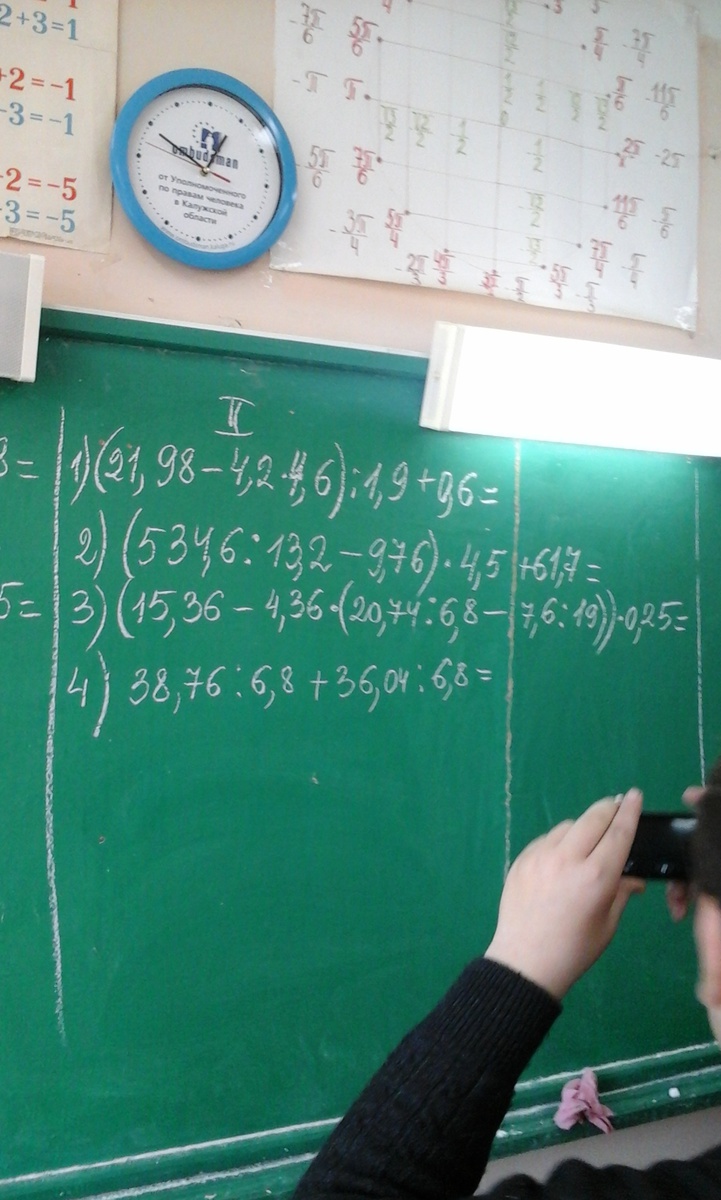 2+3=1
+2=-1
-3=-1
-2=-5
-3=-5
ombudsman
от Уполномоченного
по правам человека
в Калужской
области
-7π/6 5π/6
π/4 -7π/4
-π π
π/6 -11π/6
√3/2 √2/2 -1/2 0 1/2 1/2 √2/2 √3/2
-5π/6 7π/6
2π -2π
-3π/4 5π/4
11π/6 -π/6
-2π/3 4π/3 3π/2 -π/2 5π/3 -π/3 7π/4 -π/4
II
8= 1) (21,98-4,2·4,6):1,9+0,6=
2) (534,6:13,2-9,76)·4,5+61,7=
5= 3) (15,36-4,36·(20,74:6,8-7,6:19))·0,25=
4) 38,76:6,8+36,04:6,8=